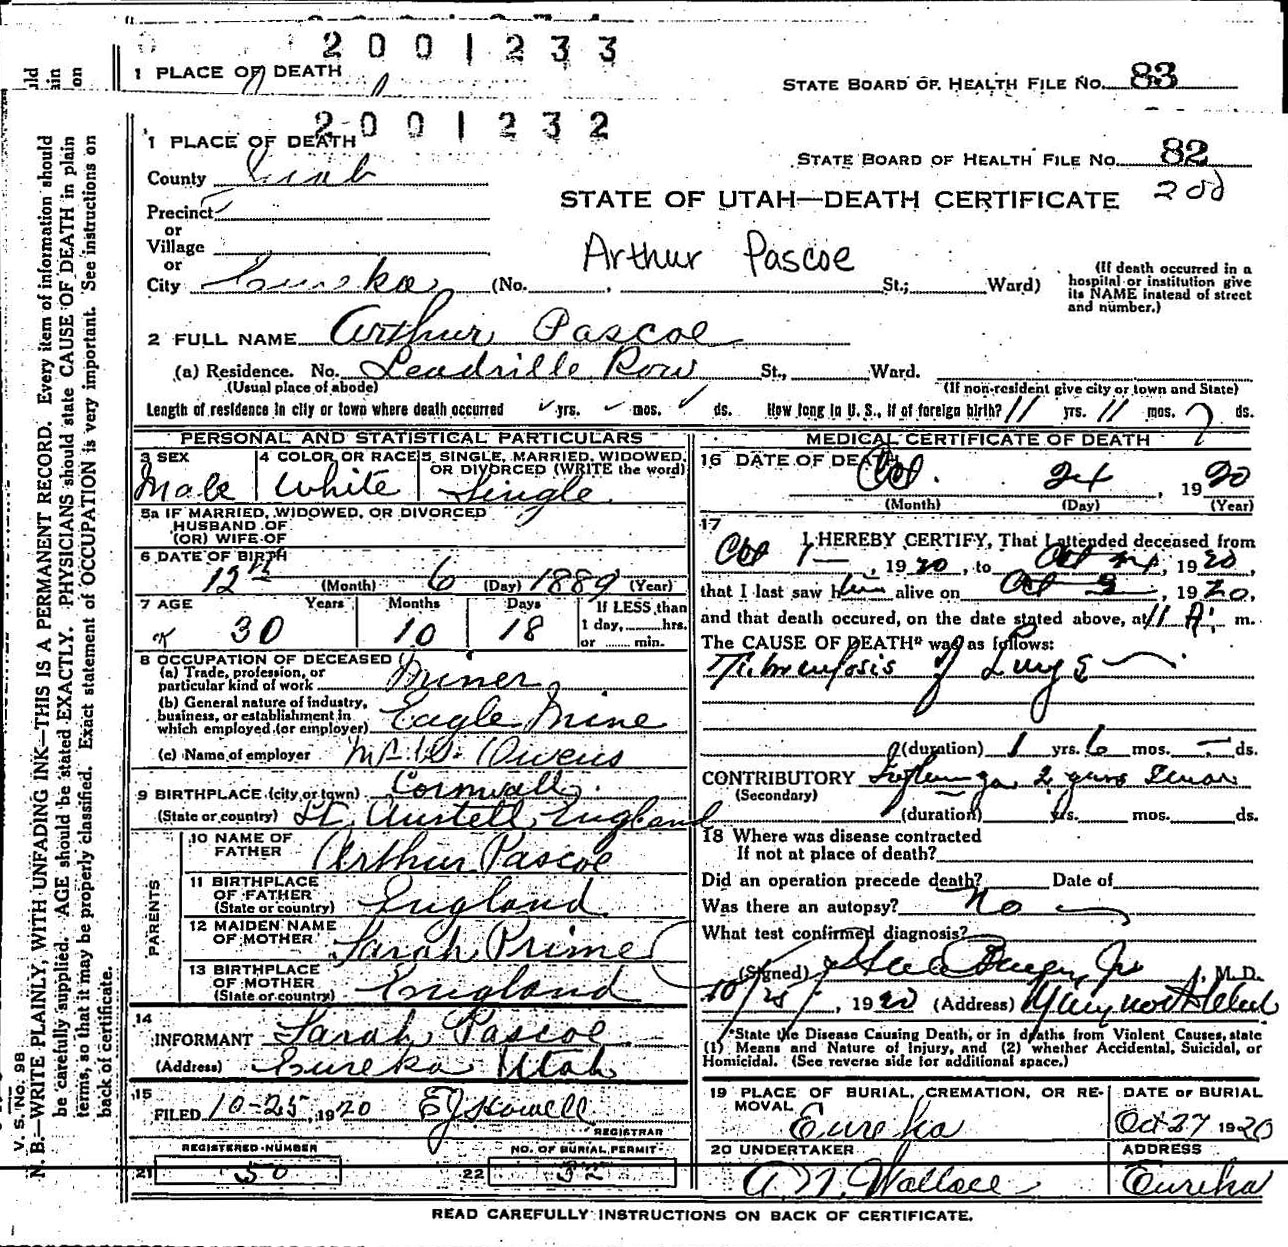 2001233
1 PLACE OF DEATH
STATE BOARD OF HEALTH FILE No. 83
2001232
1 PLACE OF DEATH
STATE BOARD OF HEALTH FILE No. 82
County Juab
200
STATE OF UTAH—DEATH CERTIFICATE
Precinct
or
Village
or
Arthur Pascoe
City Eureka (No. , St.; Ward)
(If death occurred in a hospital or institution give its NAME instead of street and number.)
2 FULL NAME Arthur Pascoe
(a) Residence. No. Leadville Row St., Ward.
(Usual place of abode)
(If non-resident give city or town and State)
Length of residence in city or town where death occurred yrs. mos. ds. How long in U. S., if of foreign birth? 11 yrs. 11 mos. 7 ds.
PERSONAL AND STATISTICAL PARTICULARS
3 SEX
Male
4 COLOR OR RACE
White
5 SINGLE, MARRIED, WIDOWED, OR DIVORCED (WRITE the word)
Single
5a IF MARRIED, WIDOWED, OR DIVORCED
HUSBAND OF
(OR) WIFE OF
6 DATE OF BIRTH
12th (Month) 6 (Day) 1889 (Year)
7 AGE Years Months Days If LESS than
30 10 18 1 day, hrs.
or min.
8 OCCUPATION OF DECEASED
(a) Trade, profession, or
particular kind of work Miner
(b) General nature of industry,
business, or establishment in
which employed (or employer) Eagle Mine
(c) Name of employer Owens
9 BIRTHPLACE (city or town) Cornwall
(State or country) St. Austell, England
PARENTS
10 NAME OF
FATHER Arthur Pascoe
11 BIRTHPLACE
OF FATHER
(State or country) England
12 MAIDEN NAME
OF MOTHER Sarah Prime
13 BIRTHPLACE
OF MOTHER
(State or country) England
14
INFORMANT Sarah Pascoe
(Address) Eureka Utah
15
FILED 10-25, 1920 EJ Howell
REGISTRAR
REGISTERED NUMBER
21 50
NO. OF BURIAL PERMIT
22 32
MEDICAL CERTIFICATE OF DEATH
16 DATE OF DEATH
Oct. 24, 1920
(Month) (Day) (Year)
17
I HEREBY CERTIFY, That I attended deceased from
Oct 1, 1920, to Oct 24, 1920,
that I last saw him alive on Oct, 1920,
and that death occured, on the date stated above, at 11 A. m.
The CAUSE OF DEATH* was as follows:
Tuberculosis of Lungs
(duration) 1 yrs. 6 mos. — ds.
CONTRIBUTORY Influenza 2 years
(Secondary)
(duration) yrs. mos. ds.
18 Where was disease contracted
If not at place of death?
Did an operation precede death? Date of
Was there an autopsy? No
What test confirmed diagnosis?
(Signed) Jr M. D.
10/25, 1920 (Address)
*State the Disease Causing Death, or in deaths from Violent Causes, state
(1) Means and Nature of Injury, and (2) whether Accidental, Suicidal, or
Homicidal. (See reverse side for additional space.)
19 PLACE OF BURIAL, CREMATION, OR RE-
MOVAL
Eureka
DATE OF BURIAL
Oct 27 1920
20 UNDERTAKER
A. N. Wallace
ADDRESS
Eureka
READ CAREFULLY INSTRUCTIONS ON BACK OF CERTIFICATE.
V. S. No. 98
N. B.—WRITE PLAINLY, WITH UNFADING INK—THIS IS A PERMANENT RECORD. Every item of information should
be carefully supplied. AGE should be stated EXACTLY. PHYSICIANS should state CAUSE OF DEATH in plain
terms, so that it may be properly classified. Exact statement of OCCUPATION is very important. See instructions on
back of certificate.